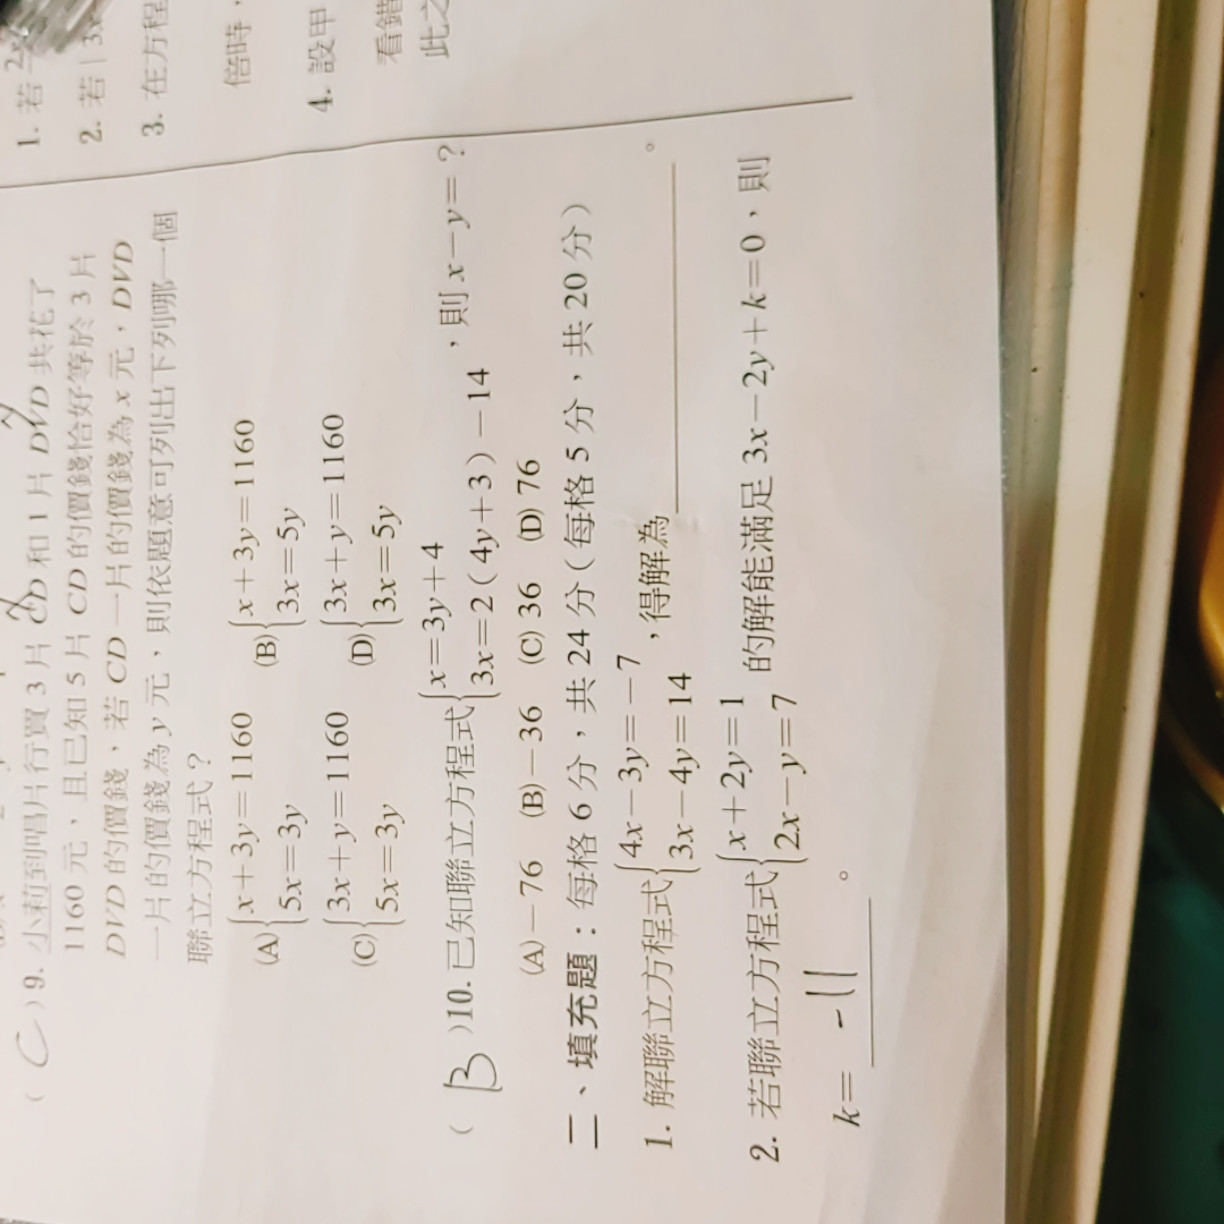 ( C ) 9. 小莉到唱片行買 3 片 CD 和 1 片 DVD 共花了
1160 元、且已知 5 片 CD 的價錢恰好等於 3 片
DVD 的價錢、若 CD 一片的價錢為 x 元，DVD
一片的價錢為 y 元，則依題意可列出下列哪一個
聯立方程式？
(A) { x＋3y＝1160 (B) { x＋3y＝1160
5x＝3y 3x＝5y
(C) { 3x＋y＝1160 (D) { 3x＋y＝1160
5x＝3y 3x＝5y
( B )10. 已知聯立方程式 { x＝3y＋4
3x＝2（4y＋3）－14 ，則 x－y＝？
(A)－76 (B)－36 (C) 36 (D) 76
二、填充題：每格 6 分，共 24 分（每格 5 分，共 20 分）
1. 解聯立方程式 { 4x－3y＝－7
3x－4y＝14 ，得解為 。
2. 若聯立方程式 { x＋2y＝1
2x－y＝7 的解能滿足 3x－2y＋k＝0，則
k＝ -11 。
1. 若
2. 若 | 3x
3. 在方程
倍時，
4. 設甲
看錯
此之